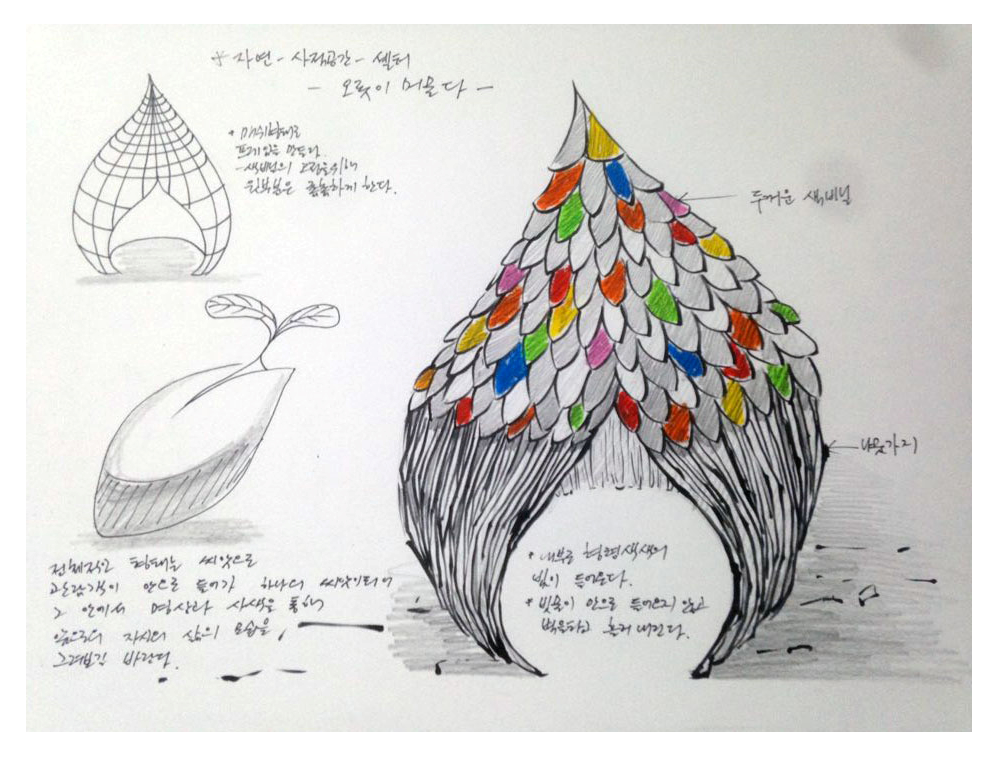 * 자연 - 사적공간 - 쉘터
- 오롯이 머물다 -
* 마쉬형태로
프레임을 만든다.
- 색비닐의 고정을 위해
윗부분은 촘촘하게 한다.
두꺼운 색비닐
나뭇가지
* 내부는 형형색색의
빛이 들어온다.
* 빗물이 안으로 들어오지 않고
벽을타고 흘러내린다.
전체적인 형태는 씨앗으로
관람객이 안으로 들어가 하나의 씨앗이되어
그 안에서 명상과 사색을 통해
앞으로의 자신의 삶의 모습을
그려보길 바란다.